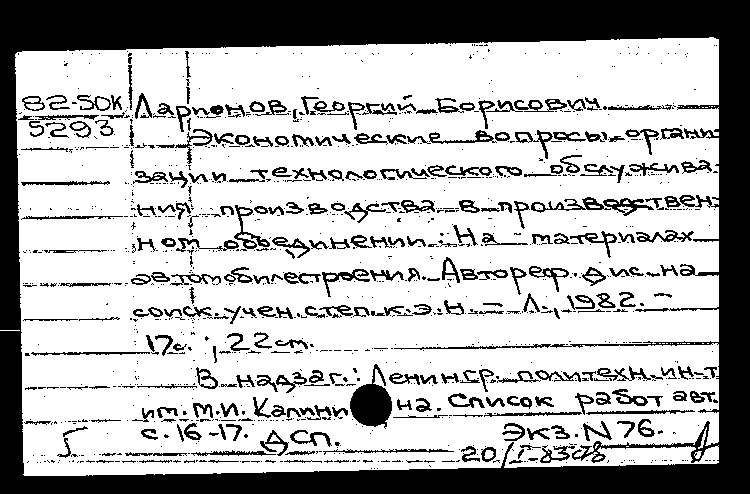 82-50К Ларионов, Георгий Борисович.
5293
Экономические вопросы органи-
зации технологического обслужива-
ния производства в производствен-
ном объединении: На материалах
автомобилестроения. Автореф. дис. на
соиск. учен. степ. к.э.н. – Л., 1982. –
17с.; 22 см.
В надзаг.: Ленингр. политехн. ин-т
им. М.И. Калинина. Список работ авт.
с. 16-17. ДСП. Экз. N 76.
20/I-83